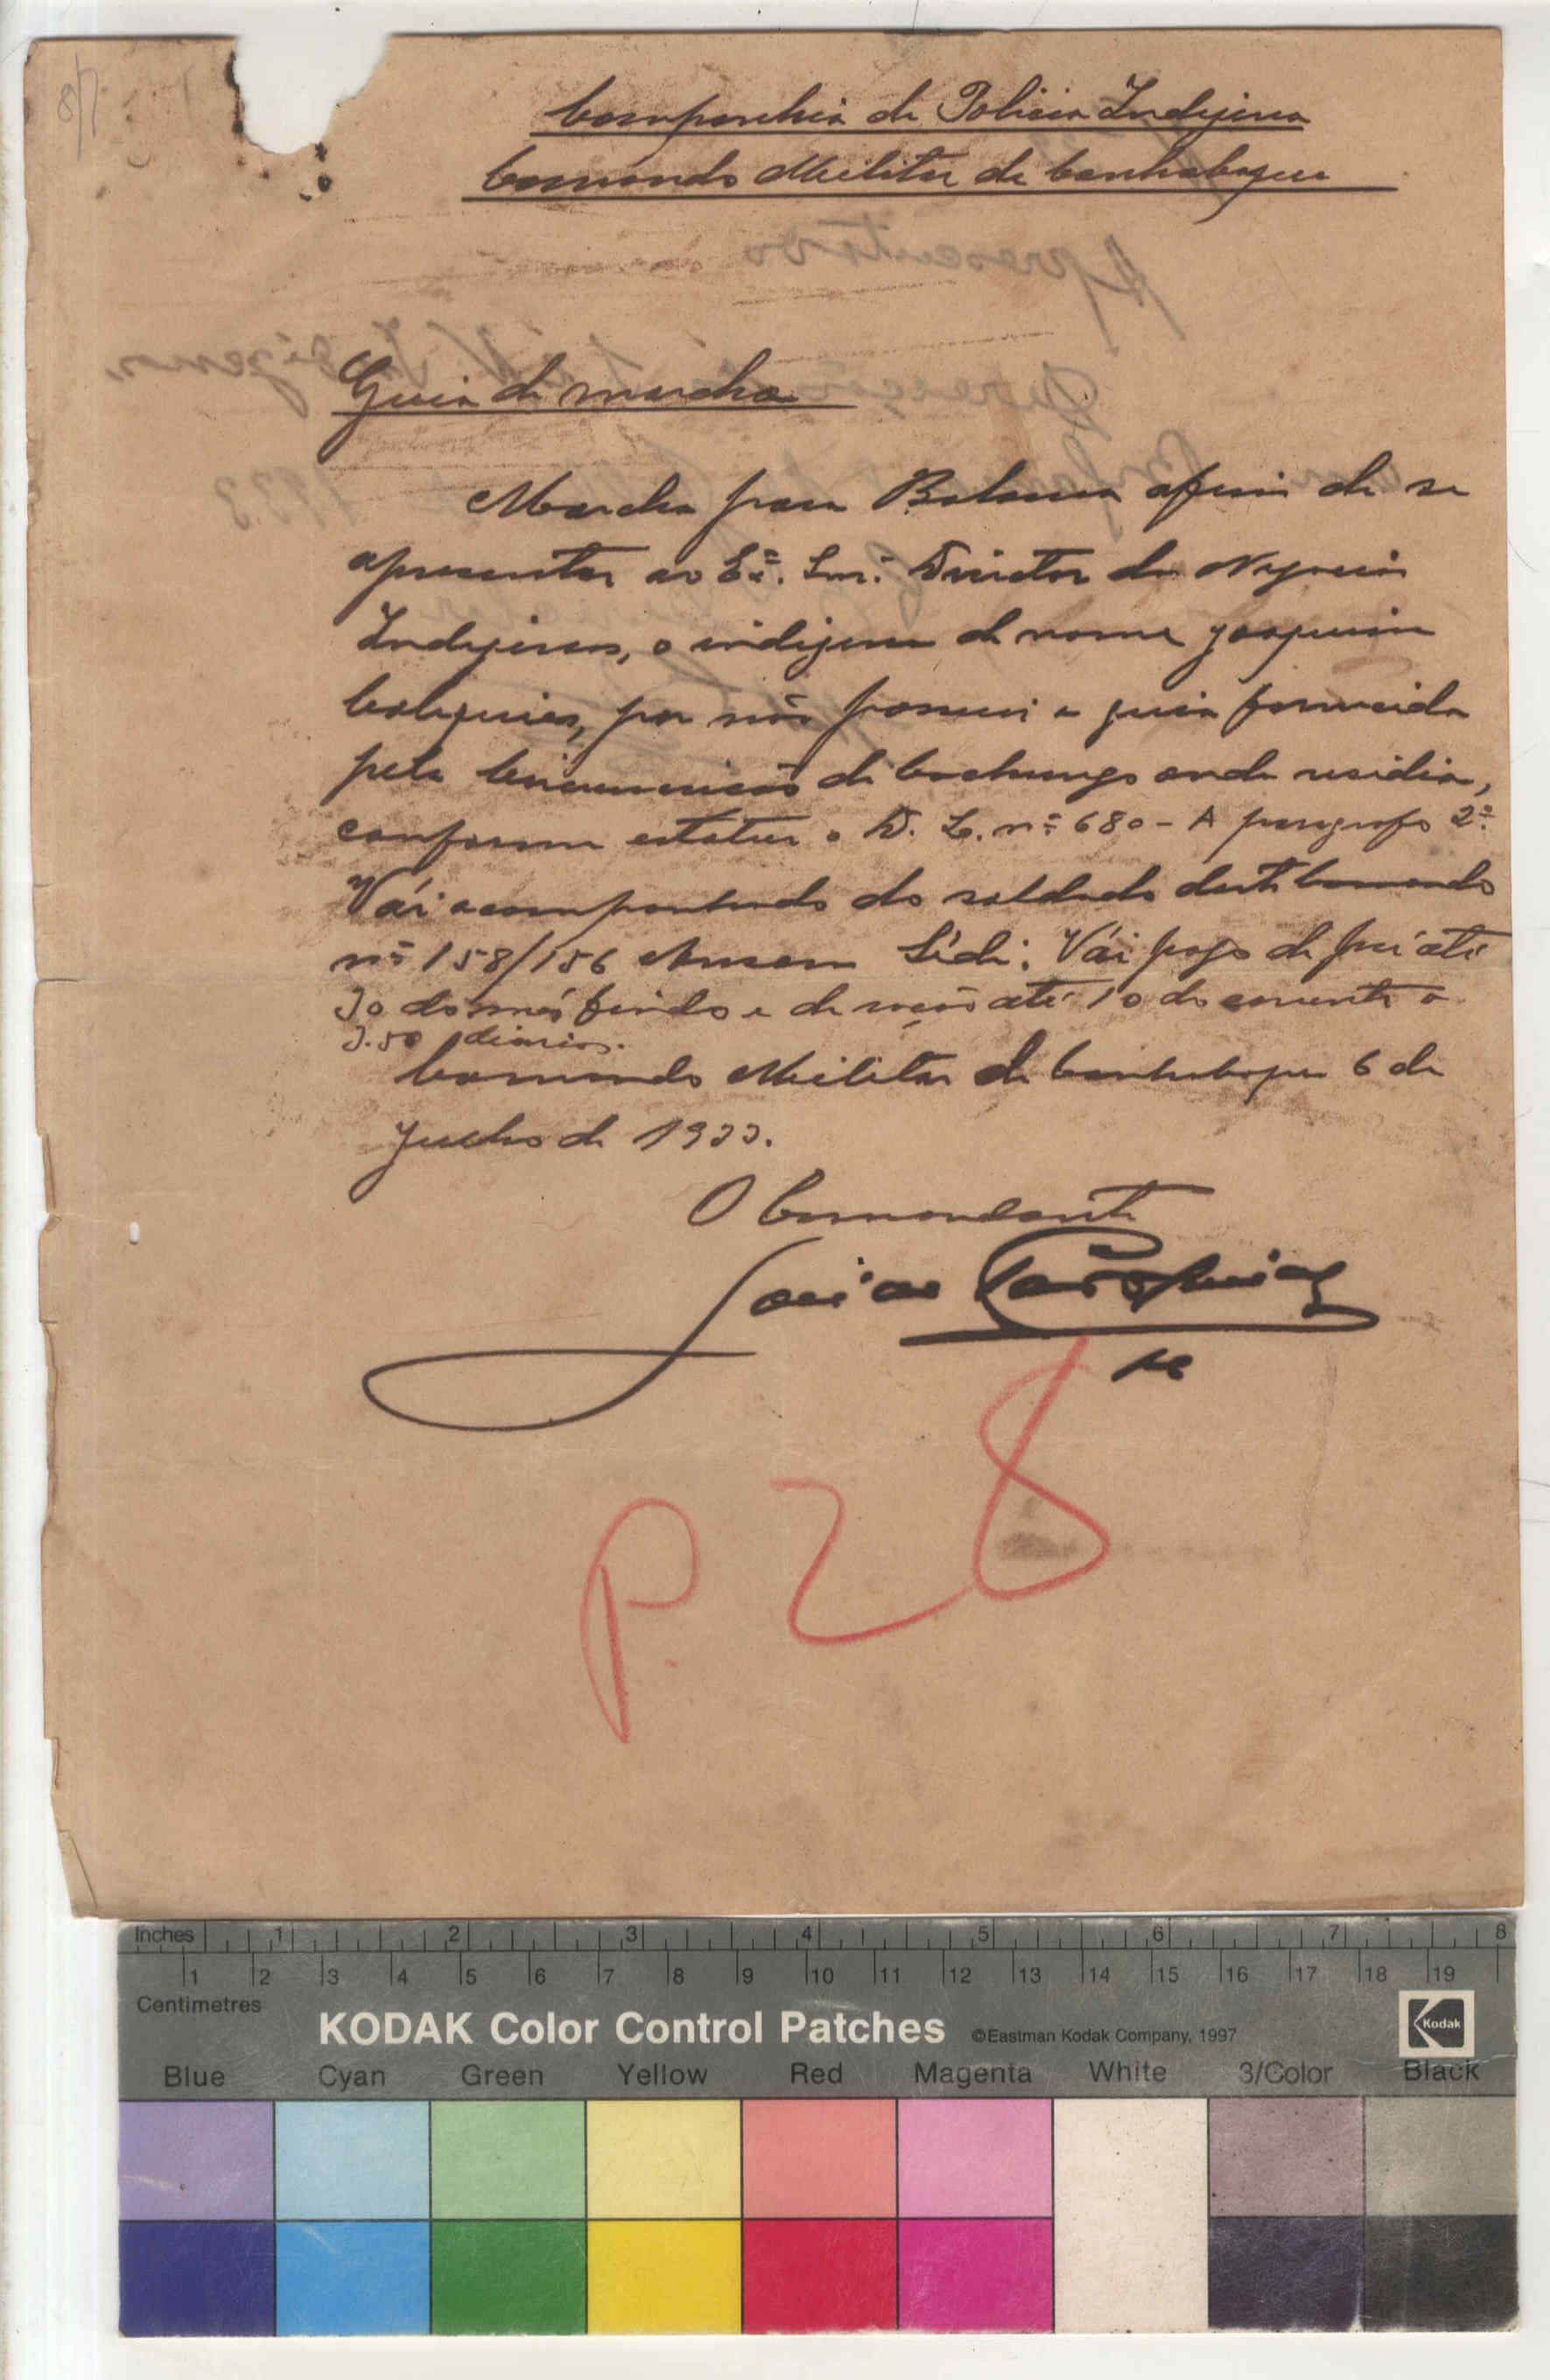 8/7
Companhia de Policia Indijena
Comando Militar de Canhabaque
Guia de marcha
Marcha para Bolama afim de se
apresentar ao Ex.º Snr. Director dos Negocios
Indijenas, o indijena de nome Joaquim
por não possuir a guia fornecida
pela Circunscrição de Cachungo onde residia,
conforme estatue o D. L. nº 680-A paragrafo 2º.
Vái acompanhado do soldado deste Comando
nº 158/156 Sidi. Vái pago de pré até
30 do mês findo e de até 10 do corrente a
3.50 diarios.
Comando Militar de Canhabaque 6 de
Julho de 1933.
O Comandante
P. 28
Apresentado
Indigenas
1933
Inches 1 2 3 4 5 6 7 8
1 2 3 4 5 6 7 8 9 10 11 12 13 14 15 16 17 18 19
Centimetres
KODAK Color Control Patches ©Eastman Kodak Company, 1997 Kodak
Blue Cyan Green Yellow Red Magenta White 3/Color Black